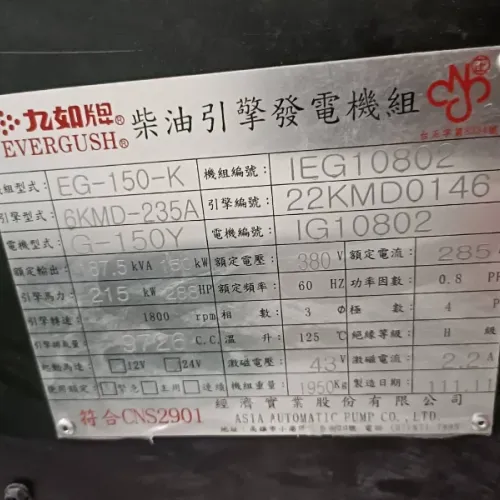 九如牌® 柴油引擎發電機組
EVERGUSH® 正
組型式: EG-150-K 機組編號: IEG10802
引擎型式: 6KMD-235A 引擎編號: 22KMD0146
電機型式: G-150Y 電機編號: IG10802
額定輸出: 187.5 kVA 150 kW 額定電壓: 380 V 額定電流: 285
引擎馬力: 215 kW 288 HP 額定頻率: 60 HZ 功率因數: 0.8 PF
引擎轉速: 1800 rpm 相數: 3 Φ 極數: 4 P
引擎排氣量: 9726 C.C. 溫升: 125 ℃ 絕緣等級: H 級
起動為達: 12V 24V 激磁電壓: 43 V 激磁電流: 2.2 A
使用額定: 緊急 主用 連續 機組重量: 1950 Kg 製造日期: 111.11
符合CNS2901 經濟實業股份有限公司
ASIA AUTOMATIC PUMP CO., LTD.
地址: 高雄市小港 電話